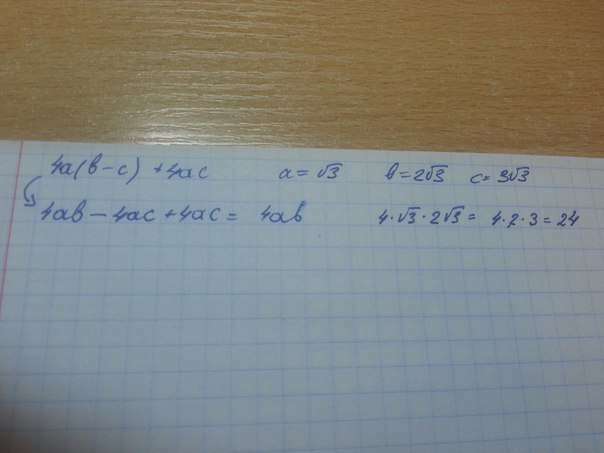 4a(b-c) + 4ac a = √3 b = 2√3 c = 3√3
4ab - 4ac + 4ac = 4ab 4·√3·2√3 = 4·2·3 = 24